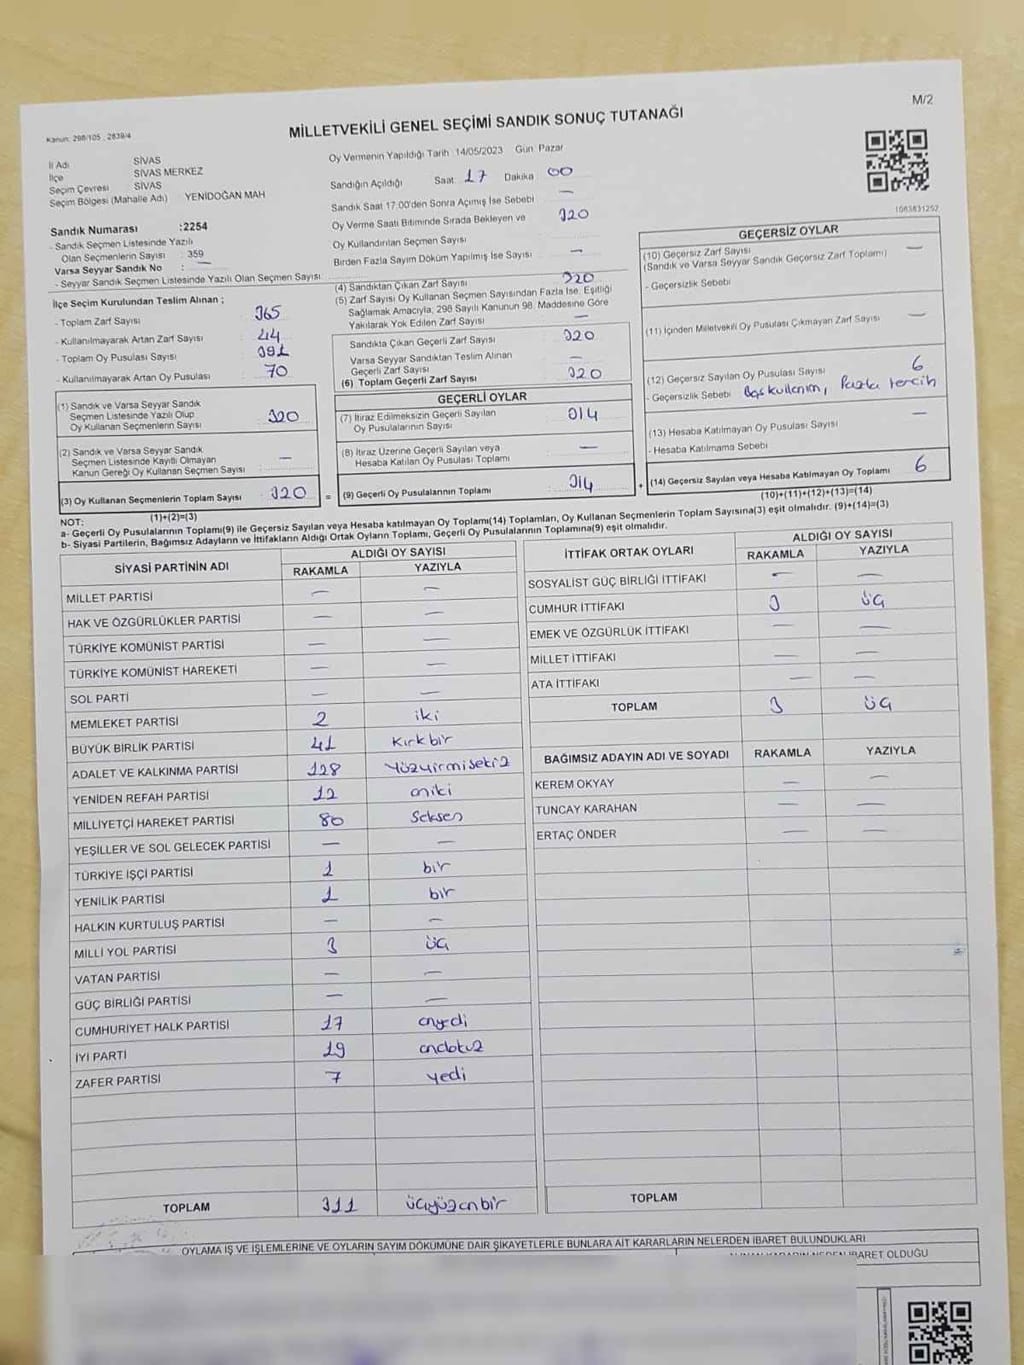 M/2
Kanun: 298/105 , 2839/4
MİLLETVEKİLİ GENEL SEÇİMİ SANDIK SONUÇ TUTANAĞI
İl Adı SİVAS
İlçe SİVAS MERKEZ
Seçim Çevresi SİVAS
Seçim Bölgesi (Mahalle Adı) YENİDOĞAN MAH
Sandık Numarası :2254
- Sandık Seçmen Listesinde Yazılı
Olan Seçmenlerin Sayısı : 359
Varsa Seyyar Sandık No : —
- Seyyar Sandık Seçmen Listesinde Yazılı Olan Seçmen Sayısı
İlçe Seçim Kurulundan Teslim Alınan ;
- Toplam Zarf Sayısı : 365
- Kullanılmayarak Artan Zarf Sayısı : 44
- Toplam Oy Pusulası Sayısı : 391
- Kullanılmayarak Artan Oy Pusulası : 70
(1) Sandık ve Varsa Seyyar Sandık
Seçmen Listesinde Yazılı Olup
Oy Kullanan Seçmenlerin Sayısı : 320
(2) Sandık ve Varsa Seyyar Sandık
Seçmen Listesinde Kayıtlı Olmayan
Kanun Gereği Oy Kullanan Seçmen Sayısı : —
(3) Oy Kullanan Seçmenlerin Toplam Sayısı : 320
(1)+(2)=(3)
Oy Vermenin Yapıldığı Tarih 14/05/2023 Gün Pazar
Sandığın Açıldığı Saat 17 Dakika 00
Sandık Saat 17.00'den Sonra Açımış İse Sebebi —
Oy Verme Saati Bitiminde Sırada Bekleyen ve
Oy Kullandırılan Seçmen Sayısı 320
Birden Fazla Sayım Döküm Yapılmış İse Sayısı : —
(4) Sandıktan Çıkan Zarf Sayısı : 320
(5) Zarf Sayısı Oy Kullanan Seçmen Sayısından Fazla İse, Eşitliği
Sağlamak Amacıyla, 298 Sayılı Kanunun 98. Maddesine Göre
Yakılarak Yok Edilen Zarf Sayısı : —
Sandıkta Çıkan Geçerli Zarf Sayısı : 320
Varsa Seyyar Sandıktan Teslim Alınan
Geçerli Zarf Sayısı : —
(6) Toplam Geçerli Zarf Sayısı : 320
GEÇERLİ OYLAR
(7) İtiraz Edilmeksizin Geçerli Sayılan
Oy Pusulalarının Sayısı : 314
(8) İtiraz Üzerine Geçerli Sayılan veya
Hesaba Katılan Oy Pusulası Toplamı : —
= (9) Geçerli Oy Pusulalarının Toplamı : 314
1083831252
GEÇERSİZ OYLAR
(10) Geçersiz Zarf Sayısı —
(Sandık ve Varsa Seyyar Sandık Geçersiz Zarf Toplamı)
- Geçersizlik Sebebi
(11) İçinden Milletvekili Oy Pusulası Çıkmayan Zarf Sayısı —
(12) Geçersiz Sayılan Oy Pusulası Sayısı 6
- Geçersizlik Sebebi Boş kullanım, Fazla tercih
(13) Hesaba Katılmayan Oy Pusulası Sayısı —
- Hesaba Katılmama Sebebi
+ (14) Geçersiz Sayılan veya Hesaba Katılmayan Oy Toplamı 6
(10)+(11)+(12)+(13)=(14)
NOT:
a- Geçerli Oy Pusulalarının Toplamı(9) ile Geçersiz Sayılan veya Hesaba katılmayan Oy Toplamı(14) Toplamları, Oy Kullanan Seçmenlerin Toplam Sayısına(3) eşit olmalıdır. (9)+(14)=(3)
b- Siyasi Partilerin, Bağımsız Adayların ve İttifakların Aldığı Ortak Oyların Toplamı, Geçerli Oy Pusulalarının Toplamına(9) eşit olmalıdır.
SİYASİ PARTİNİN ADI ALDIĞI OY SAYISI
RAKAMLA YAZIYLA
MİLLET PARTİSİ — —
HAK VE ÖZGÜRLÜKLER PARTİSİ — —
TÜRKİYE KOMÜNİST PARTİSİ — —
TÜRKİYE KOMÜNİST HAREKETİ — —
SOL PARTİ — —
MEMLEKET PARTİSİ 2 iki
BÜYÜK BİRLİK PARTİSİ 41 Kırkbir
ADALET VE KALKINMA PARTİSİ 128 Yüzyirmisekiz
YENİDEN REFAH PARTİSİ 12 oniki
MİLLİYETÇİ HAREKET PARTİSİ 80 Seksen
YEŞİLLER VE SOL GELECEK PARTİSİ — —
TÜRKİYE İŞÇİ PARTİSİ 1 bir
YENİLİK PARTİSİ 1 bir
HALKIN KURTULUŞ PARTİSİ — —
MİLLİ YOL PARTİSİ 3 üç
VATAN PARTİSİ — —
GÜÇ BİRLİĞİ PARTİSİ — —
CUMHURİYET HALK PARTİSİ 17 onyedi
İYİ PARTİ 19 ondokuz
ZAFER PARTİSİ 7 yedi
TOPLAM 311 üçyüzonbir
İTTİFAK ORTAK OYLARI ALDIĞI OY SAYISI
RAKAMLA YAZIYLA
SOSYALİST GÜÇ BİRLİĞİ İTTİFAKI — —
CUMHUR İTTİFAKI 3 üç
EMEK VE ÖZGÜRLÜK İTTİFAKI — —
MİLLET İTTİFAKI — —
ATA İTTİFAKI — —
TOPLAM 3 üç
BAĞIMSIZ ADAYIN ADI VE SOYADI RAKAMLA YAZIYLA
KEREM OKYAY — —
TUNCAY KARAHAN — —
ERTAÇ ÖNDER — —
TOPLAM
OYLAMA İŞ VE İŞLEMLERİNE VE OYLARIN SAYIM DÖKÜMÜNE DAİR ŞİKAYETLERLE BUNLARA AİT KARARLARIN NELERDEN İBARET BULUNDUKLARI
İBARET OLDUĞU